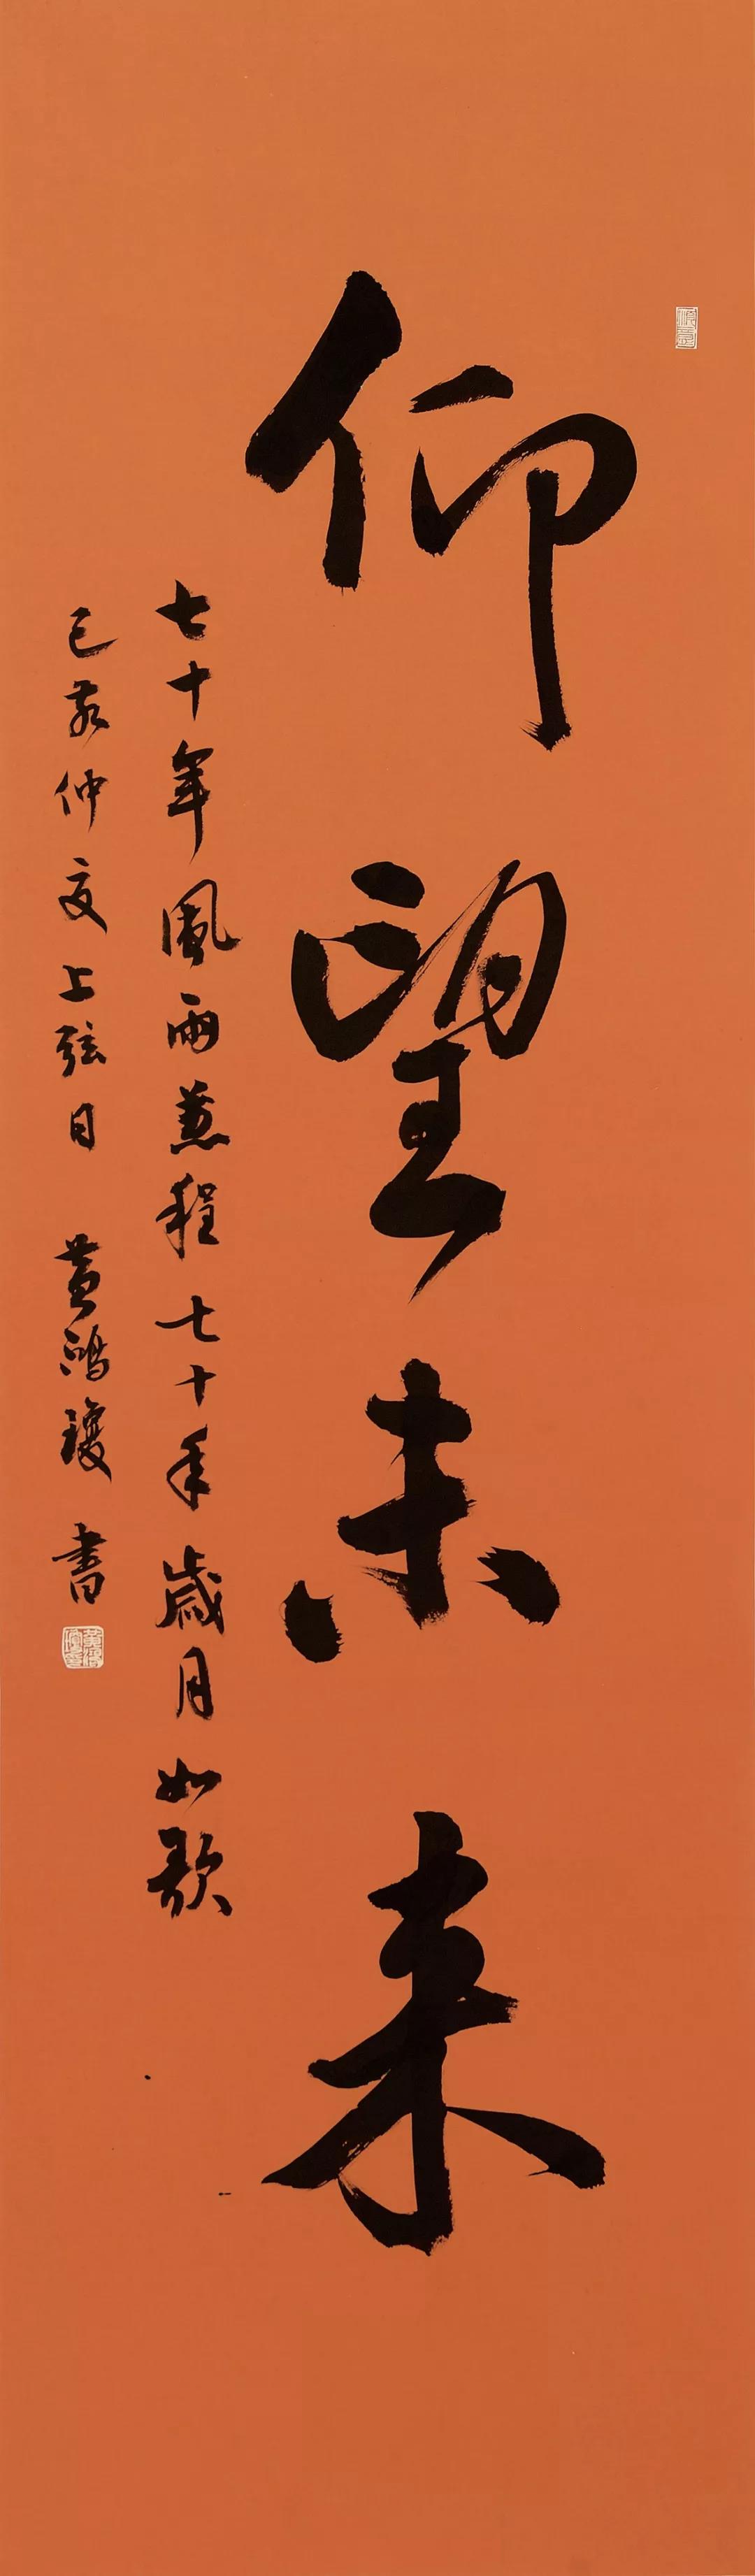 仰望未来
七十年風雨兼程七十年歳月如歌
己亥仲夏上弦日 黄鴻瓊書